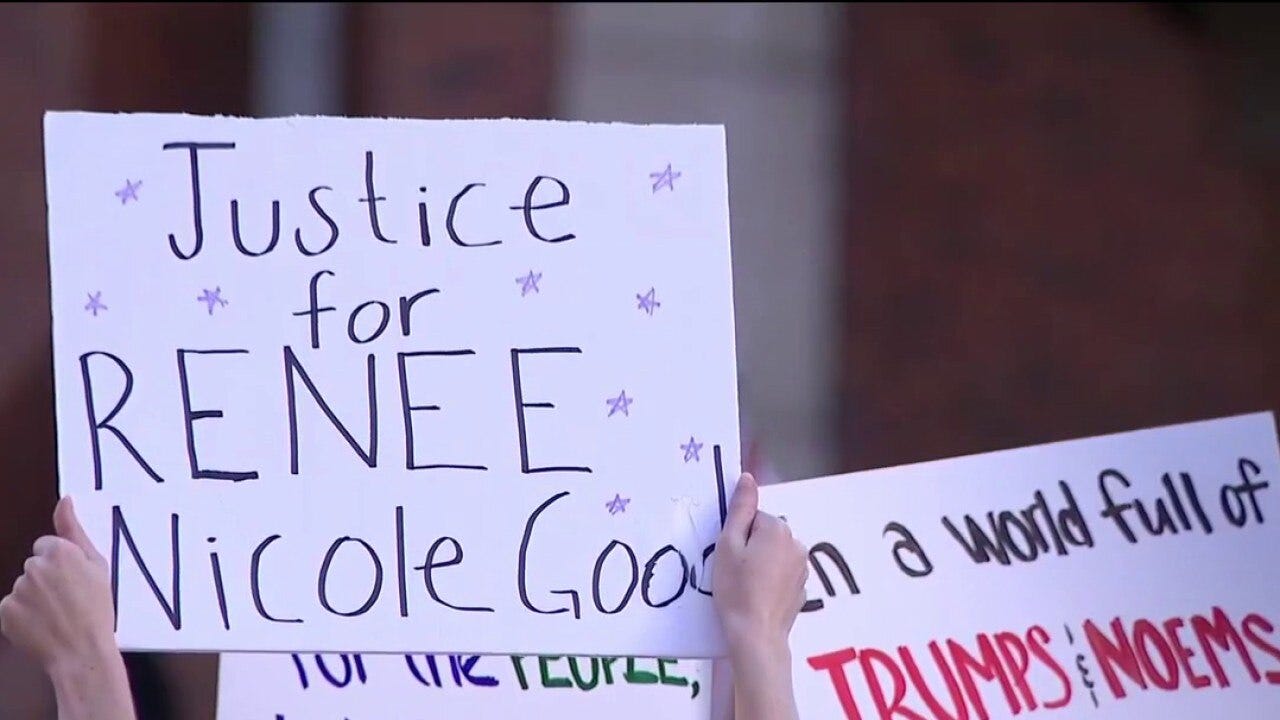 Justice
for
RENEE
Nicole Good
for the PEOPLE,
In a world full of
TRUMPS & NOEMS